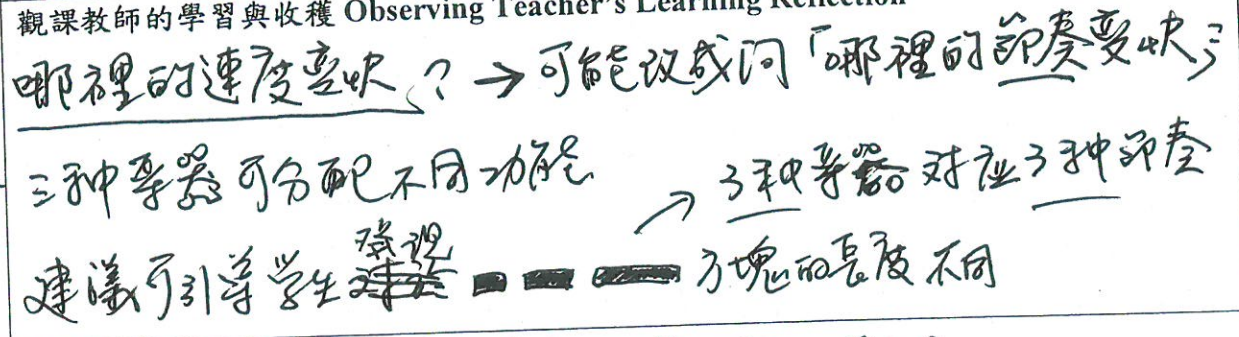 觀課教師的學習與收穫 Observing Teacher's Learning Reflection
哪裡的速度變快？→可能改成问「哪裡的節奏變快」
三种樂器可分配不同功能
→3种樂器对应3种節奏
建議可引導学生發現 方塊的長度不同